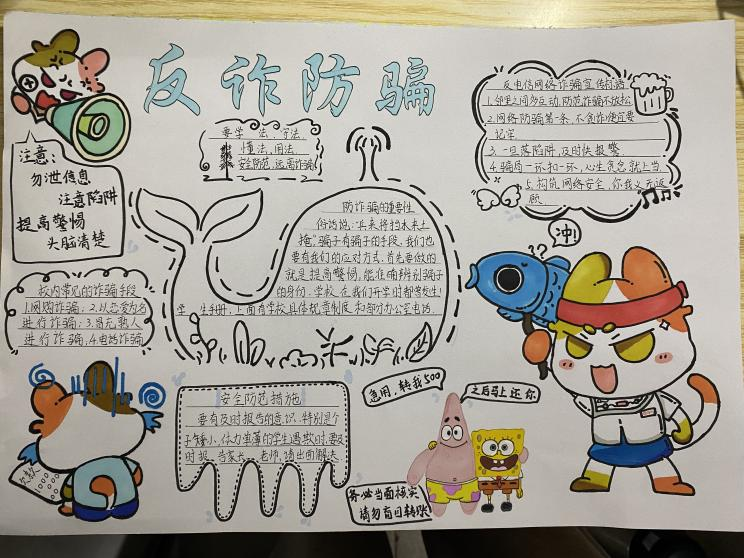 反诈防骗
注意：
勿泄信息
注意陷阱
提高警惕
头脑清楚
要学法、守法、
懂法、用法、
安全防范、远离诈骗
反电信网络诈骗宣传标语
1.邻里之间多互动,防范诈骗不放松
2.网络防骗第一条,不贪诈便宜要
记牢
3.一旦落陷阱,及时快报警
4.骗局一环扣一环,心生贪念就上当
5.构筑网络安全,你我义无返
顾
防诈骗的重要性
俗话说：“兵来将挡水来土
掩”骗子有骗子的手段,我们也
要有我们的应对方式,首先要做的
就是提高警惕,能准确辨别骗子
的身份,学校在我们开学时都营发《
学生手册,上面有学校具体规章制度和部分办公室电话
校内常见的诈骗手段
1.网购诈骗；2.以恋爱为名
进行诈骗；3.冒充熟人
进行诈骗,4.电话诈骗
安全防范措施
要有及时报告的意识,特别是个
子矮小、体力单薄的学生遇欺时,要及
时报告家长、老师,请出面解决.
急用,转我500
之后马上还你
务必当面核实
请勿盲目转账
冲!
??
欠款